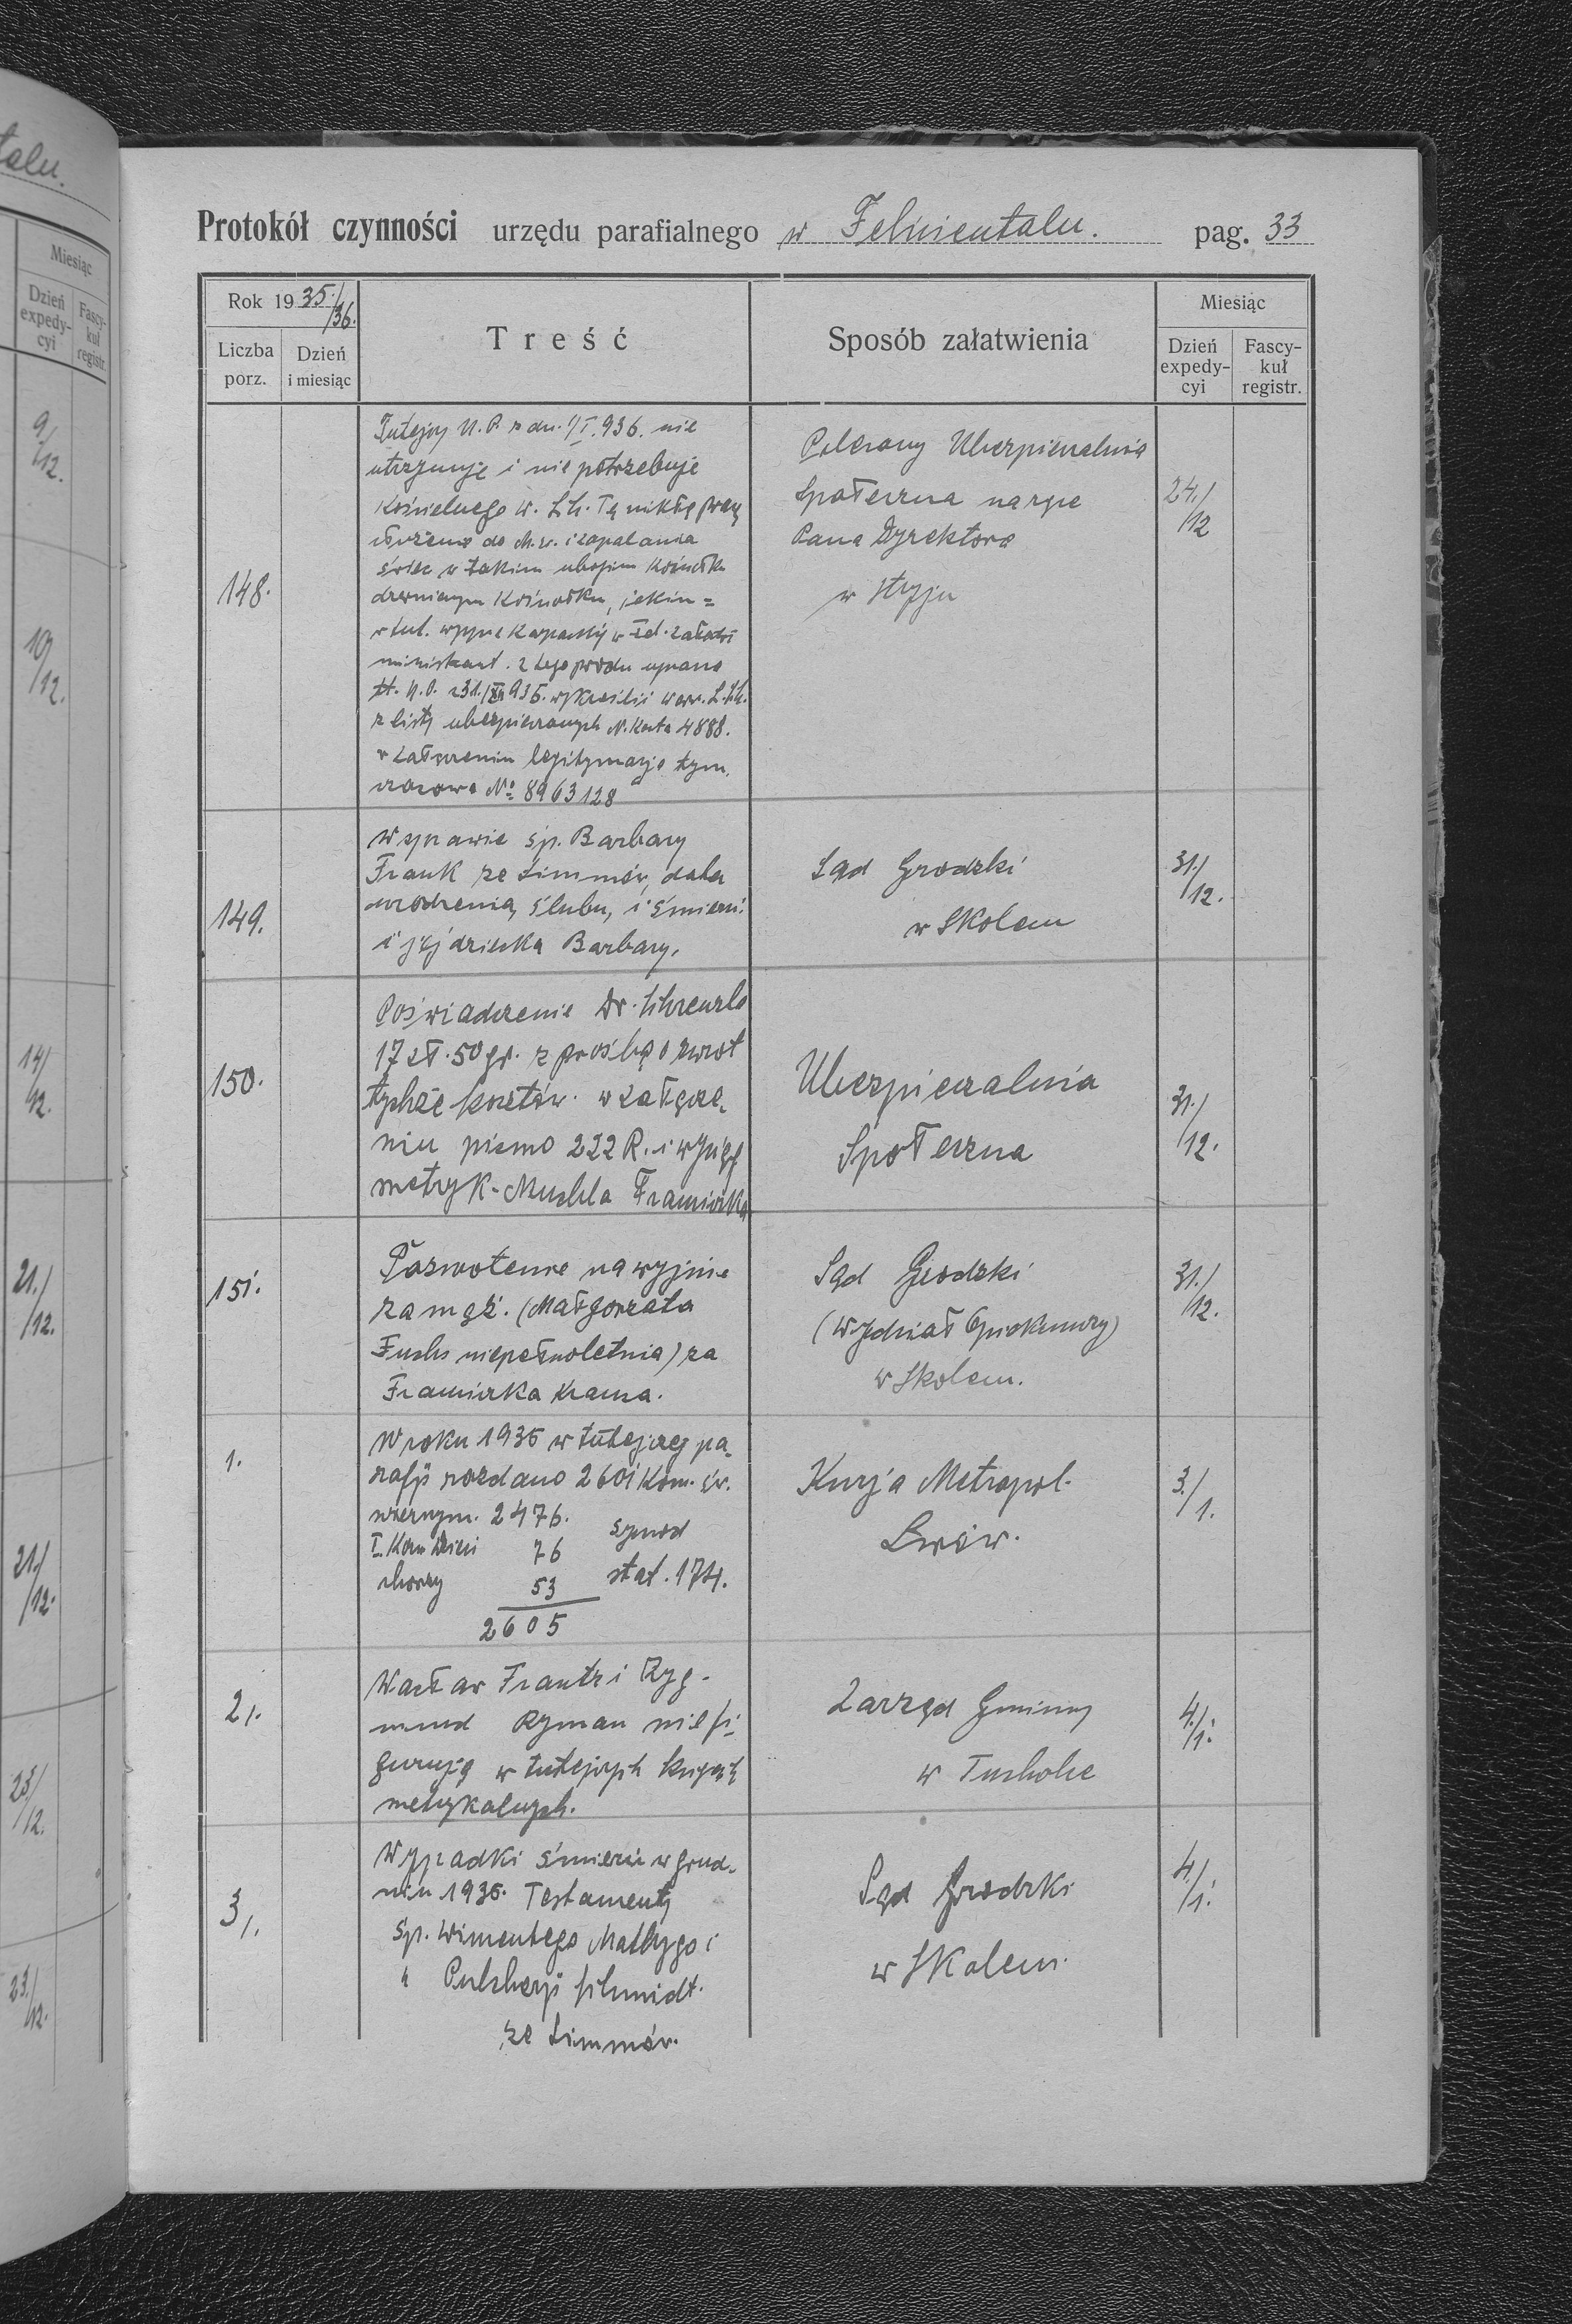 talu.
Miesiąc
Dzień expedy-cyi
Fascy-kuł registr.
9/12.
10/12.
14/12.
21/12.
21/12.
23/12.
23/12.
Protokół czynności urzędu parafialnego w Felizientalu. pag. 33
Rok 1935/36.
Liczba porz.
Dzień i miesiąc
Treść
Sposób załatwienia
Miesiąc
Dzień expedy-cyi
Fascy-kuł registr.
148.
Tutejszy U.P. z dn. 1/I.936. nie
utrzymuje i nie potrzebuje
kościelnego w. Łh. Tę nikłą pracę
do M. św. i zapalania
świec w takim ubogim kościółku
drewnianym kościołku, jakim =
w tut. załatwi
ministrant. Z tego powodu uprasza
U.P. z 31./XII 935. wykreślić
z listy ubezpieczonych N. Karta 4888.
w załączeniu legitymacja tym.
czasowa № 8963128
Polecony Ubezpieczalnia
Społeczna na ręce
Pana Dyrektora
w Stryju
24./12
149.
W sprawie śp. Barbary
Frank ze Simmów, data
urodzenia, ślubu, i śmierci
i jej dziecka Barbary.
Sąd Grodzki
w Skolem
31./12.
150.
Poświadczenie Dr. Schrenzla
17 zł. 50 gr. z prośbą o zwrot
tychże kosztów. w załącze.
niu pismo 222 R. i wyciąg
metryk. Muchla Franciszka
Ubezpieczalnia
Społeczna
31./12.
151.
Pozwolenie na wyjście
za mąż. (Małgorzata
Fuchs niepełnoletnia) za
Franciszka Krausa.
Sąd Grodzki
(Wydział Opiekuńczy)
w Skolem.
31./12.
1.
W roku 1935 w tutejszej pa_
rafji rozdano 2601 Kom. św.
wiernym. 2476.
I. Kom dzieci 76 synod
chorzy 53 stat. 174.
2605
Kurja Metropol.
Lwów.
3./1.
2/.
Wacław Frantz i Zyg-
mund Ryman nie fi_
gurują w tutejszych księgach
metrykalnych.
Zarząd Gminny
w Tucholce
4./1.
3/.
Wypadki śmierci w grud.
niu 1935. Testamenty
śp. Wincentego Mathygo i
" Pulcherji Schmidt.
ze Simmów.
Sąd Grodzki
w Skolem.
4./1.